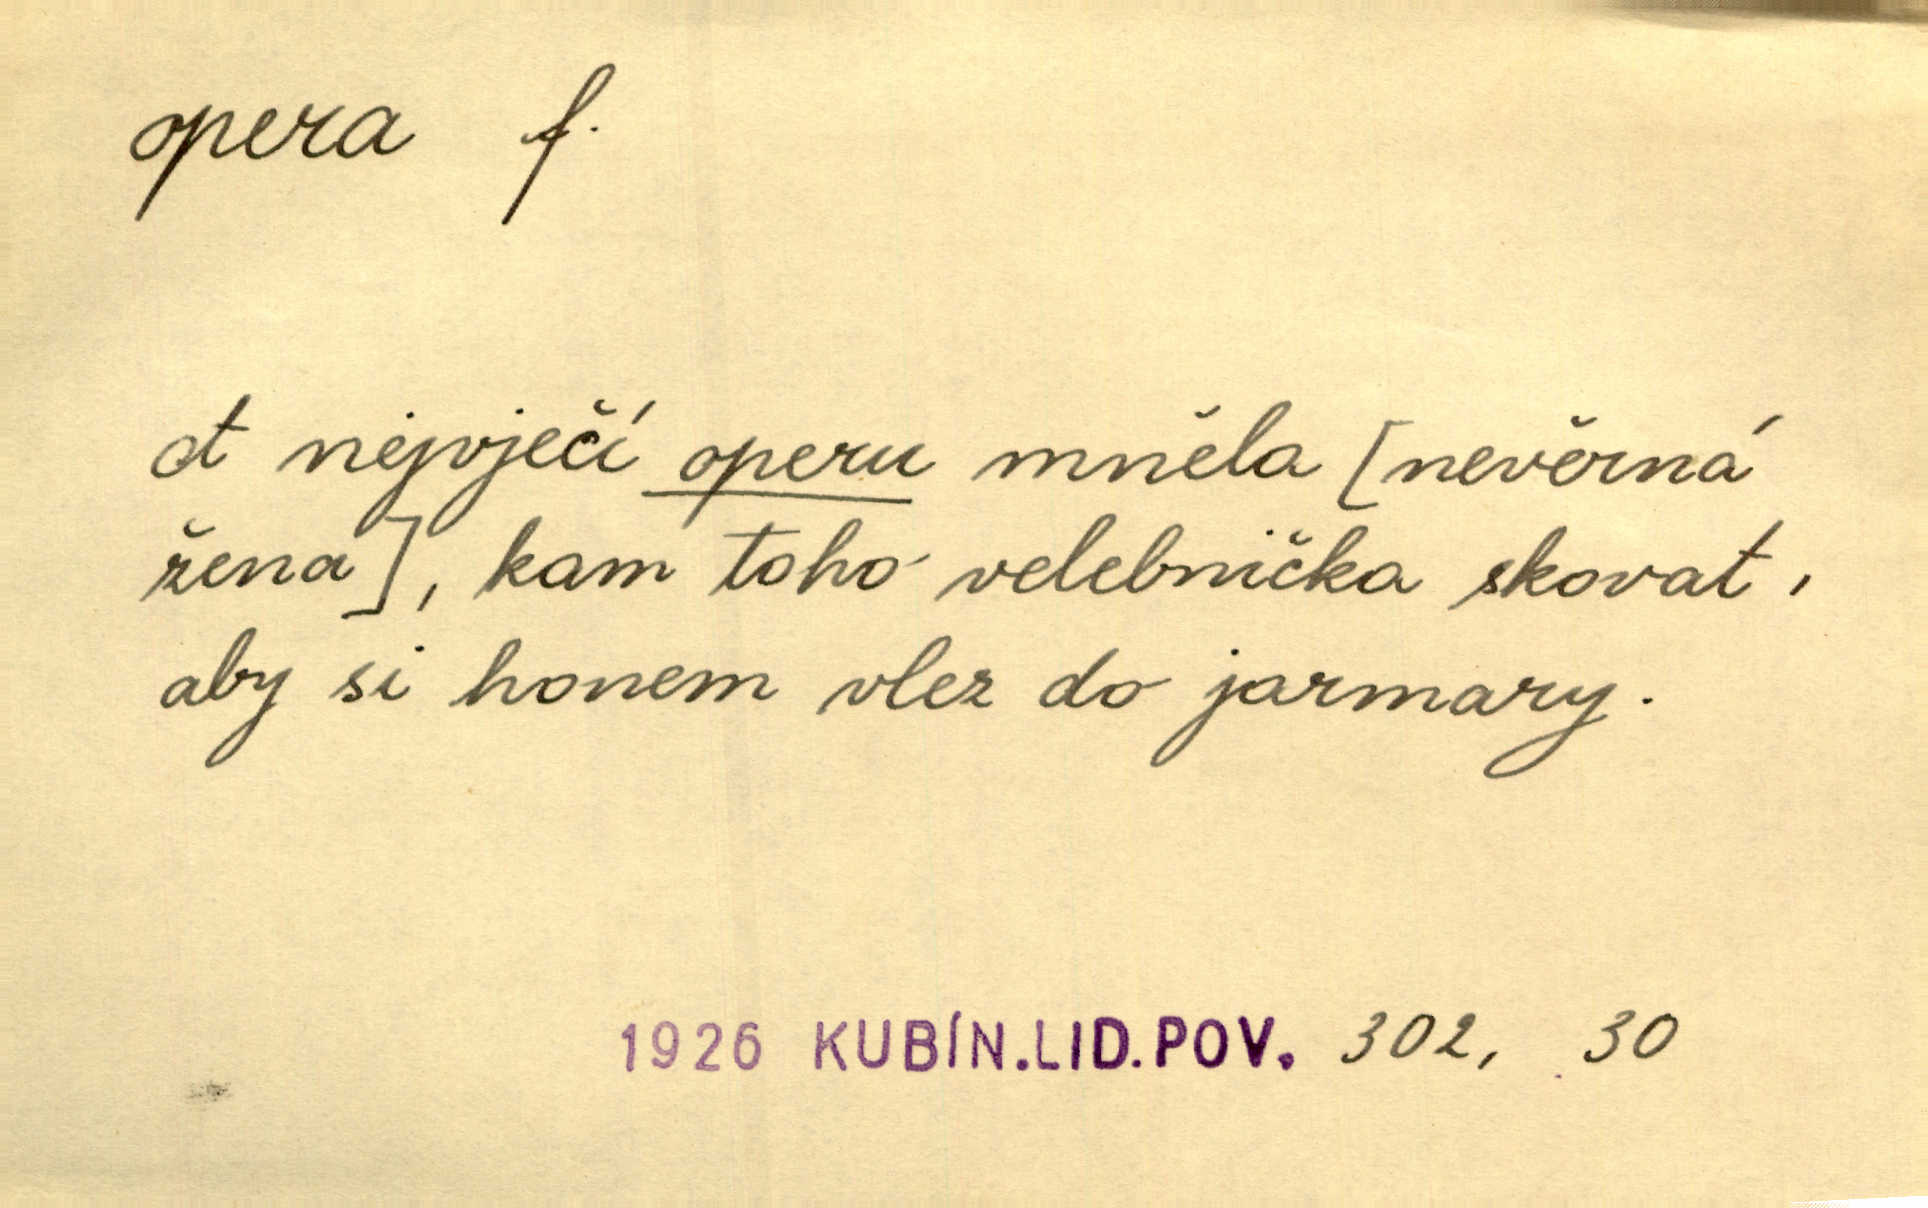 opera f.
A nejvječí operu mněla [nevěrná
žena], kam toho velebníčka skovat,
aby si honem vlez do jarmary.
1926 KUBÍN.LID.POV. 302, 30